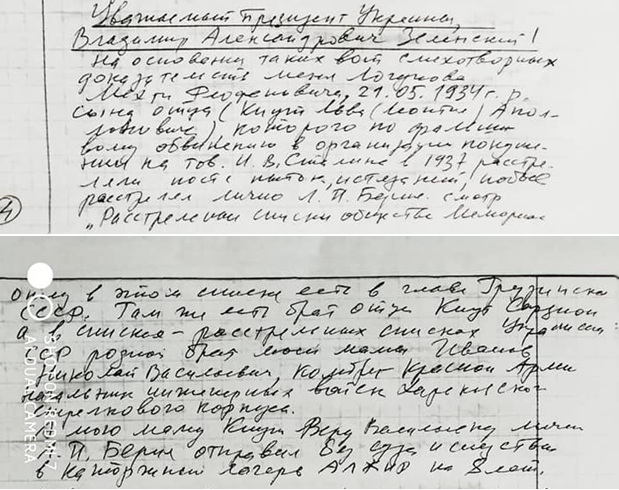 Уважаемый Президент Украины,
Владимир Александрович Зеленский!
На основании таких вот смехотворных
доказательств меня
21.05.1934 г.р.
сына отца (Кипуг Лева (Леонтия) Апол-
лоновича), которого по фальши-
вому обвинению в организации покуше-
ния на тов. И.В. Сталина в 1937 расстре-
ляли после пыток, истязаний, побоев
расстрелял лично Л.П. Берия. смотр
"Расстрельные списки общества Мемориал
4
отец в этом списке есть в глава Грузинска
ССР. Там же есть брат отца
а в списках - расстрельных списках Украинск
Р родной брат моей мамы Иванов
Николай Васильевич, комбриг Красной Арми
начальник инженерных войск Харьковског
стрелкового корпуса.
мою маму Кипуг Веру Васильевну лично
Л.П. Берия отправил без суда и следствия
в каторжный лагерь АЛЖИР на 8 лет.
AI QUAD CAMERA